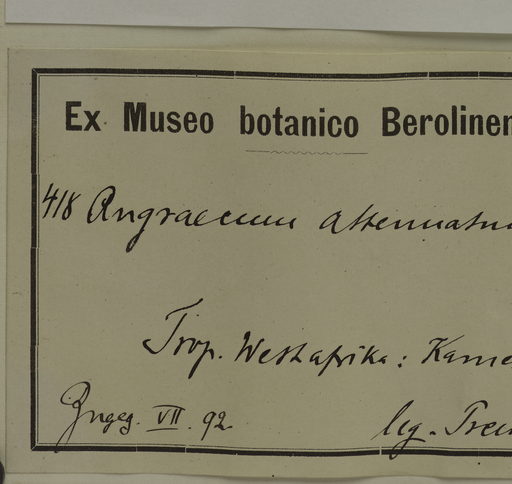 Ex Museo botanico Berolinen
418 Angraecum attenuatum
Trop. Westafrika: Kame
Zngeg. VII. 92.
leg. Preu